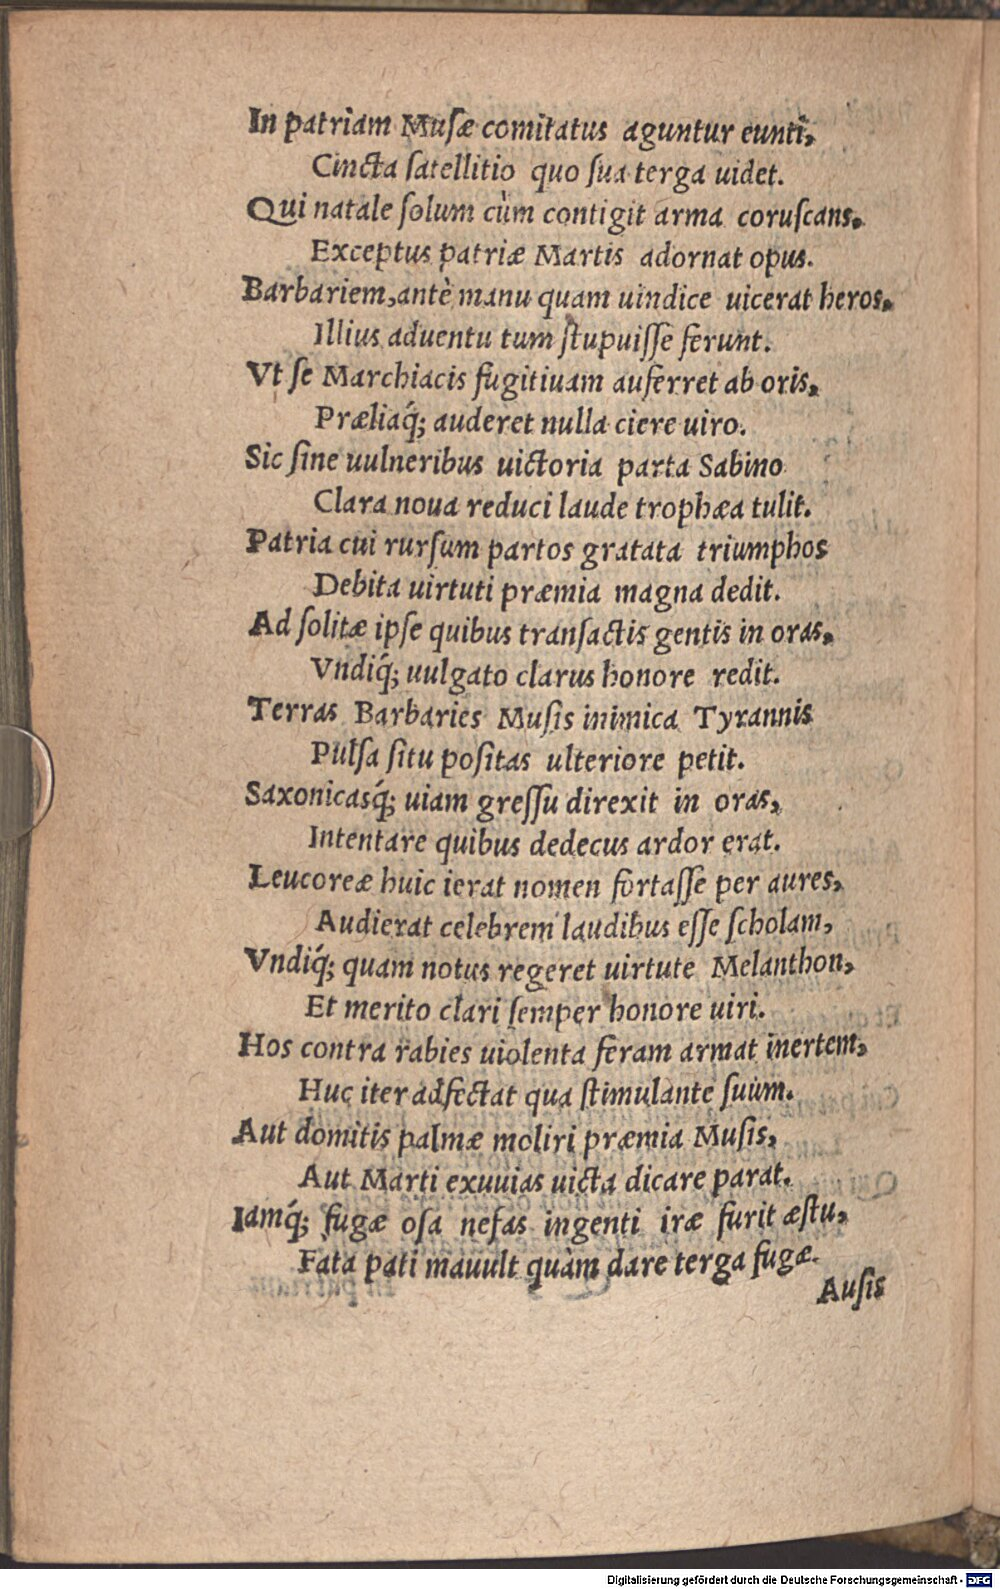 In patriam Musæ comitatus aguntur eunti,
Cincta satellitio quo sua terga uidet.
Qui natale solum cùm contigit arma coruscans,
Exceptus patriæ Martis adornat opus.
Barbariem, antè manu quam uindice uicerat heros,
Illius aduentu tum stupuisse ferunt.
Vt se Marchiacis fugitiuam auferret ab oris,
Præliaq́; auderet nulla ciere uiro.
Sic sine uulneribus uictoria parta Sabino
Clara noua reduci laude trophæa tulit.
Patria cui rursum partos gratata triumphos
Debita uirtuti præmia magna dedit.
Ad solitæ ipse quibus transactis gentis in oras,
Vndiq́; uulgato clarus honore redit.
Terras Barbaries Musis inimica Tyrannis
Pulsa situ positas ulteriore petit.
Saxonicasq́; uiam gressu direxit in oras,
Intentare quibus dedecus ardor erat.
Leucoreæ huic ierat nomen fortasse per aures,
Audierat celebrem laudibus esse scholam,
Vndiq́; quam notus regeret uirtute Melanthon,
Et merito clari semper honore uiri.
Hos contra rabies uiolenta feram armat inertem,
Huc iter adfectat qua stimulante suum.
Aut domitis palmæ moliri præmia Musis,
Aut Marti exuuias uicta dicare parat.
Iamq́; fugæ osa nefas ingenti iræ furit æstu,
Fata pati mauult quàm dare terga fugæ.
Ausis
Digitalisierung gefördert durch die Deutsche Forschungsgemeinschaft - DFG